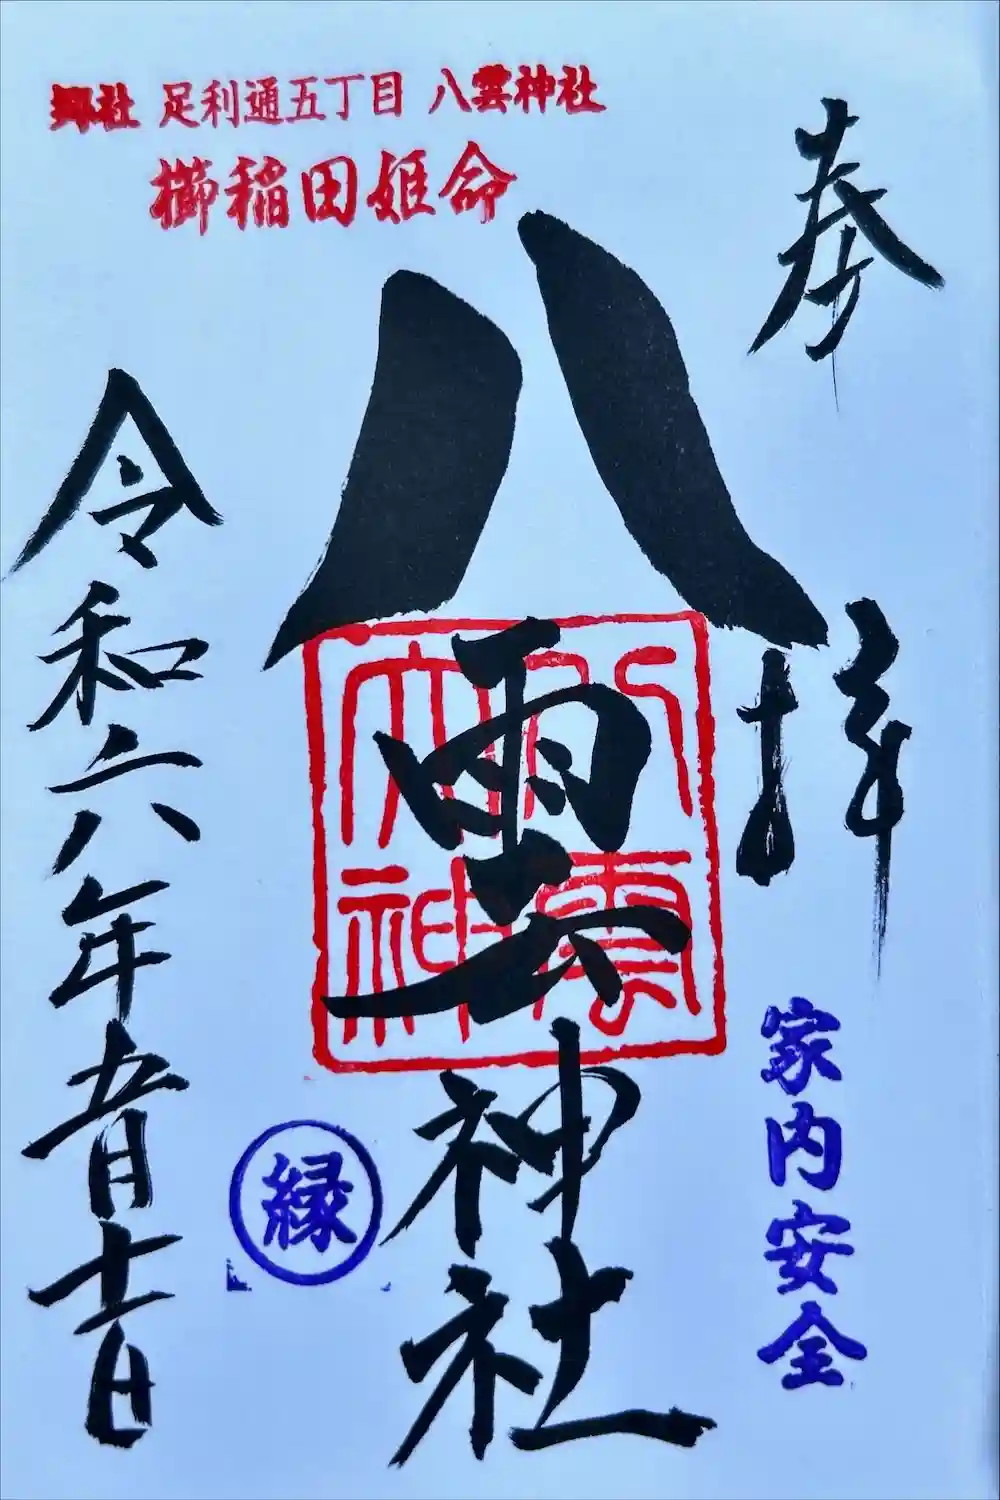 郷社 足利通五丁目 八雲神社
櫛稲田姫命
奉拝
八雲神社
八雲大神
家内安全
縁
令和六年五月十一日